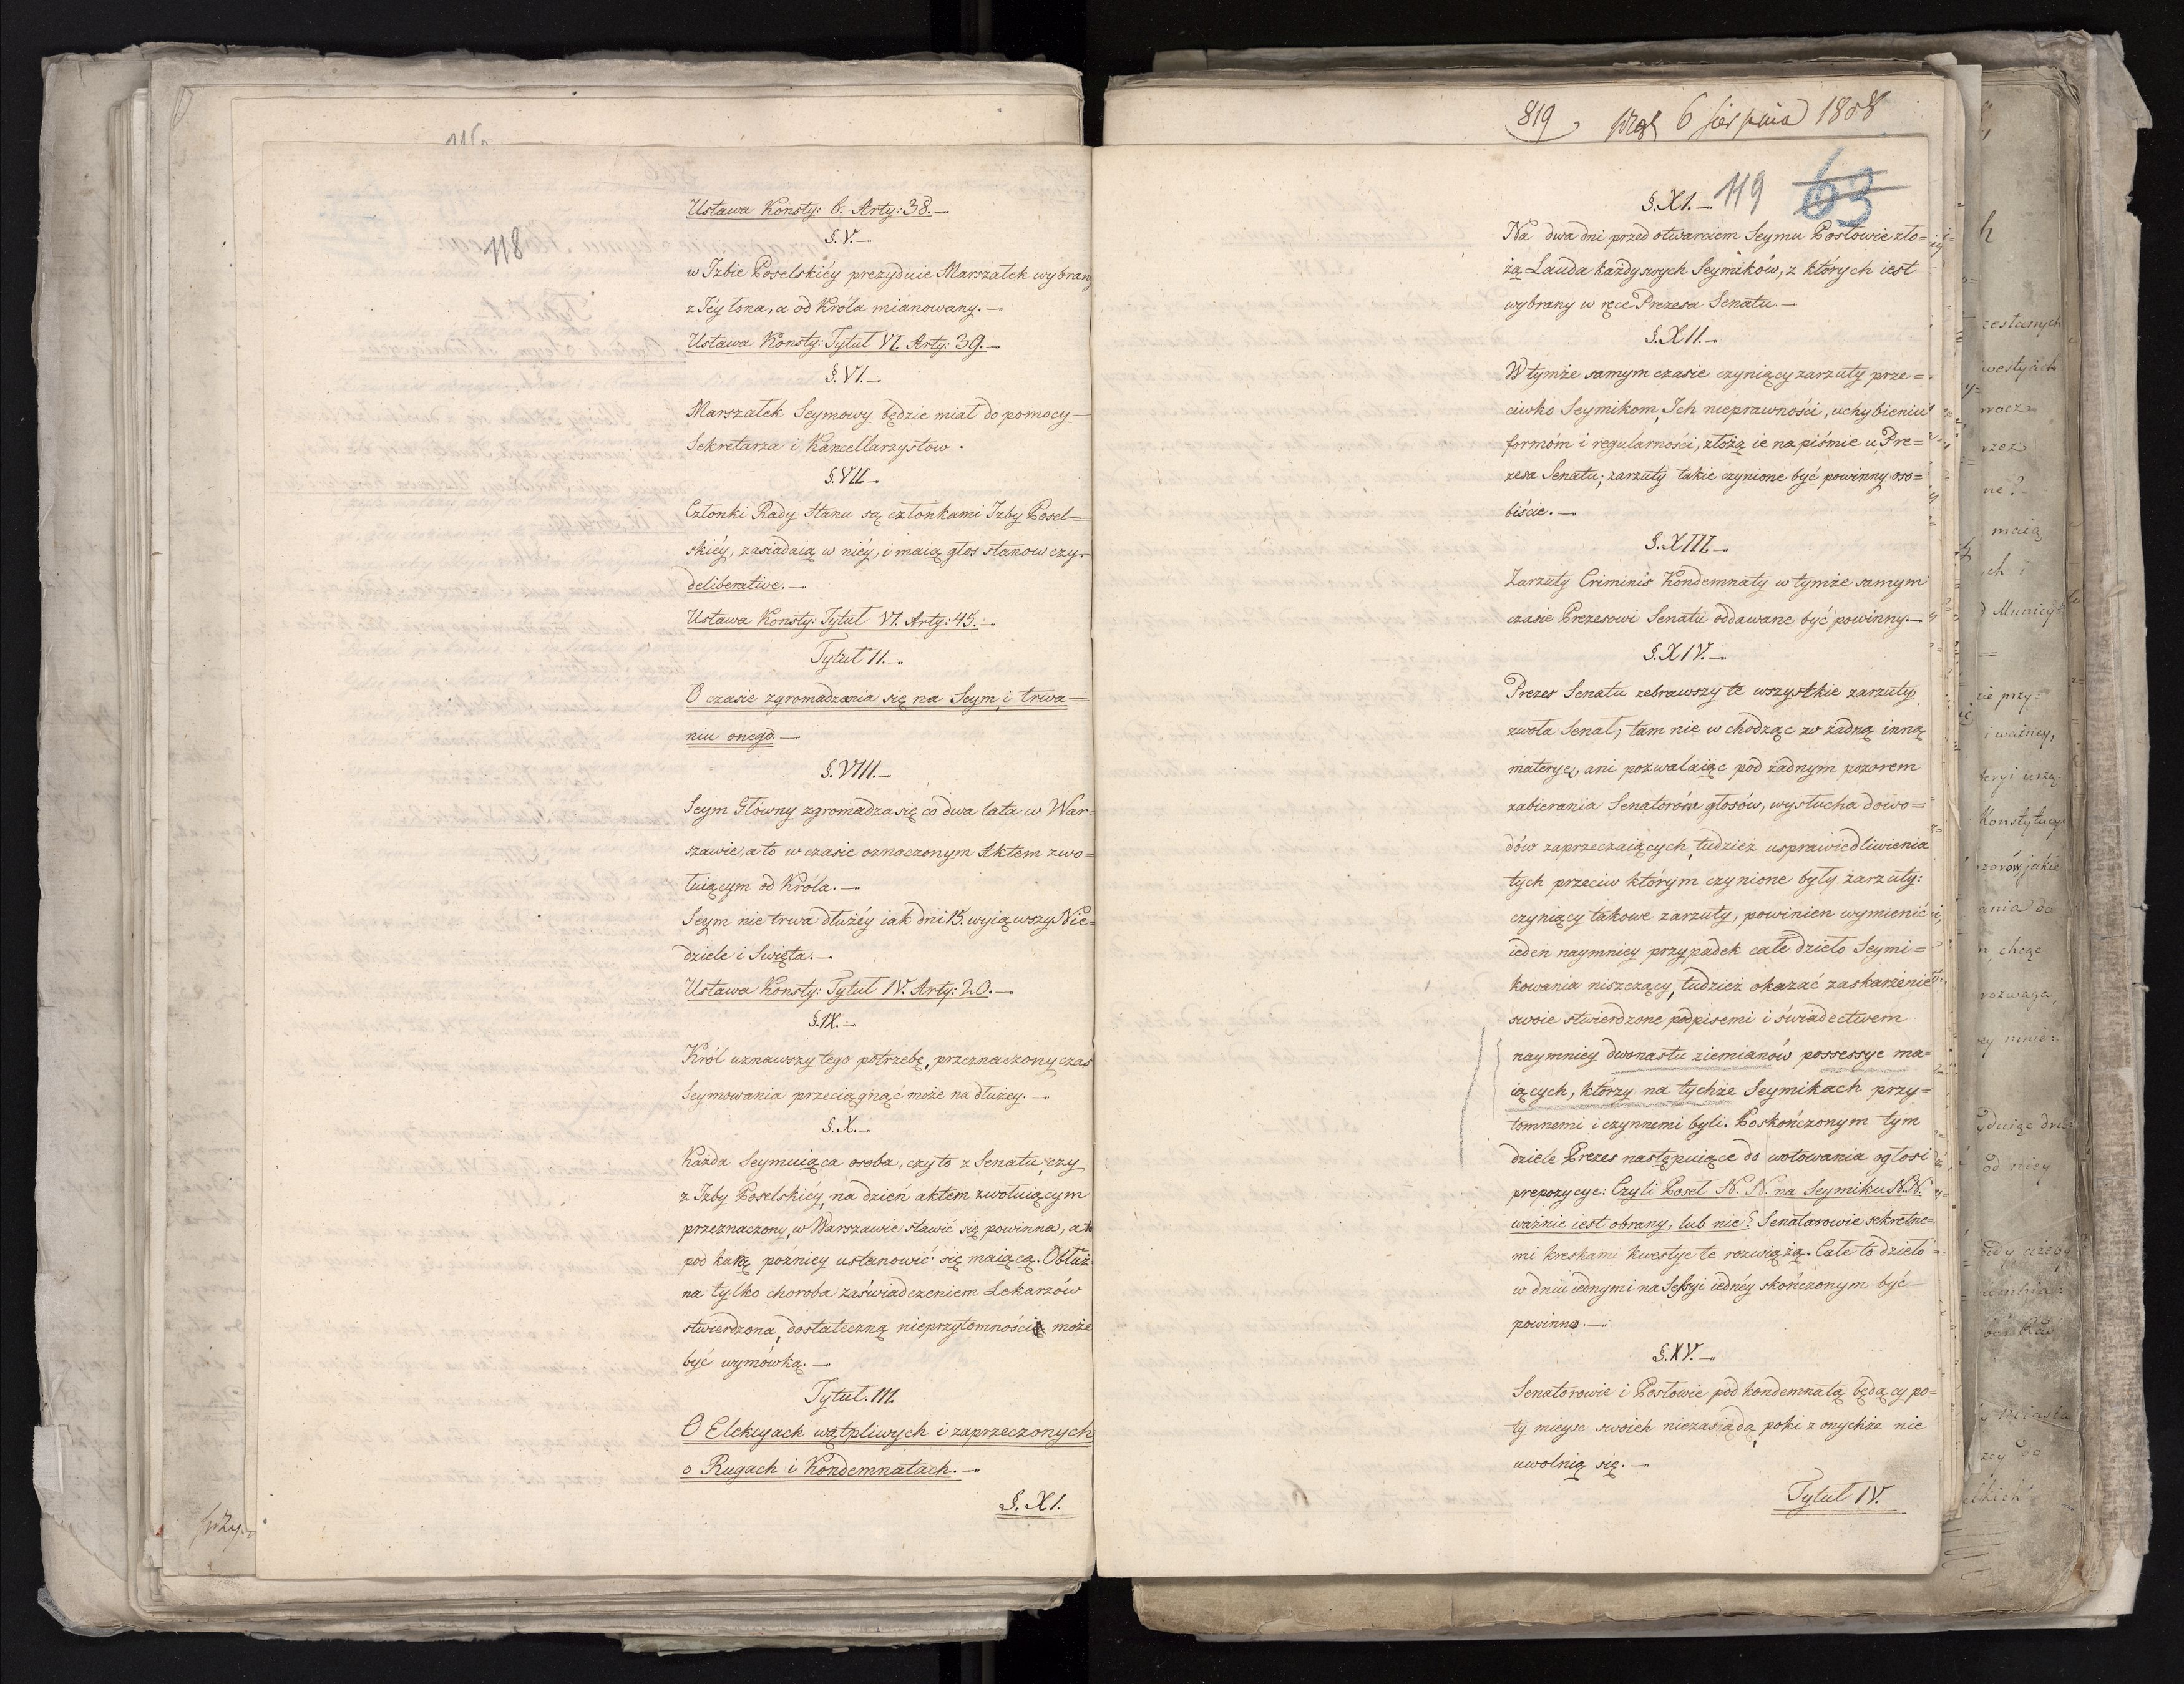 118
Ustawa Konsty: 6. Arty: 38.—
§. V.—
w Izbie Poselskiéy prezyduie Marszałek wybrany
z Iéy łona, a od Króla mianowany.—
Ustawa Konsty: Tytuł VI. Arty: 39.—
§. VI.—
Marszałek Seymowy będzie miał do pomocy
Sekretarza i Kancellarzystow.
§. VII—
Członki Rady Stanu są członkami Izby Posel=
skiéy, zasiadaią w niéy, i maią głos stanowczy.
deliberative.—
Ustawa Konsty: Tytuł VI. Arty: 45.—
Tytuł II.—
O czasie zgromadzania się na Seym, i trwa=
niu onego.—
§. VIII.—
Seym Główny zgromadza się co dwa lata w War=
szawie, a to w czasie oznaczonym Aktem zwo=
łuiącym od Króla.—
Seym nie trwa dłużéy iak dni 15. wyiąwszy Nie=
dziele i Swięta.—
Ustawa Konsty: Tytuł IV. Arty: 20.—
§. IX.—
Król uznawszy tego potrzebę, przeznaczony czas
Seymowania przeciągnąć może na dłużey.—
§. X.—
Każda Seymuiąca osoba, czy to z Senatu, czy
z Izby Poselskiéy, na dzień aktem zwołuiącym
przeznaczony, w Warszawie stawić się powinna, a to
pod karą pozniey ustanowić się maiącą. Obłuż
na tylko choroba zaświadczeniem Lekarzów
stwierdzona, dostateczną nieprzytomności może
być wymówką.—
Tytuł. III.
O Elekcyach wątpliwych i zaprzeczonych
o Rugach i Kondemnatach.—
§. XI.
819 6 sierpnia 1808
119 63
§. XI.—
Na dwa dni przed otwarciem Seymu Posłowie zło=
żą Lauda każdy swych Seymików, z których iest
wybrany w ręce Prezesa Senatu.—
§. XII.—
W tymże samym czasie czyniący zarzuty prze=
ciwko Seymikom, Ich nieprawności, uchybieniu
formóm i regularności, złożą ie na piśmie u Pre=
zesa Senatu; zarzuty takie czynione być powinny oso=
biście.—
§. XIII.—
Zarzuty Criminis Kondemnaty w tymże samym
czasie Prezesowi Senatu oddawane być powinny.—
§. XIV.—
Prezes Senatu zebrawszy te wszystkie zarzuty,
zwoła Senat; tam nie wchodząc w żadną inną
materyę, ani pozwalaiąc pod żadnym pozorem
zabierania Senatoróm głosów, wysłucha dowo=
dów zaprzeczaiących, tudzież usprawiedliwienia
tych przeciw którym czynione były zarzuty:
czyniący takowe zarzuty, powinien wymienić
ieden naymniey przypadek całe dzieło Seymi=
kowania niszczący, tudzież okazać zaskarżenie
swoie stwierdzone podpisemi i świadectwem
naymniey dwonastu ziemianów possessye ma=
iących, którzy na tychże Seymikach przy=
tomnemi i czynnemi byli. Po skończonym tym
dziele Prezes następuiące do wotowania ogłosi
prepozycye: Czyli Poseł N. N. na Seymiku N. N.
ważnie iest obrany, lub nie? Senatarowie sekretne=
mi kreskami kwestye te rozwiążą. Całe to dzieło
w dniu iednym i na Sessyi iednéy skończonym być
powinno.—
§. XV.—
Senatorowie i Posłowie pod kondemnatą będący po=
ty mieysc swoich niezasiądą, poki z onychże nie
uwolnią się.—
Tytuł IV.